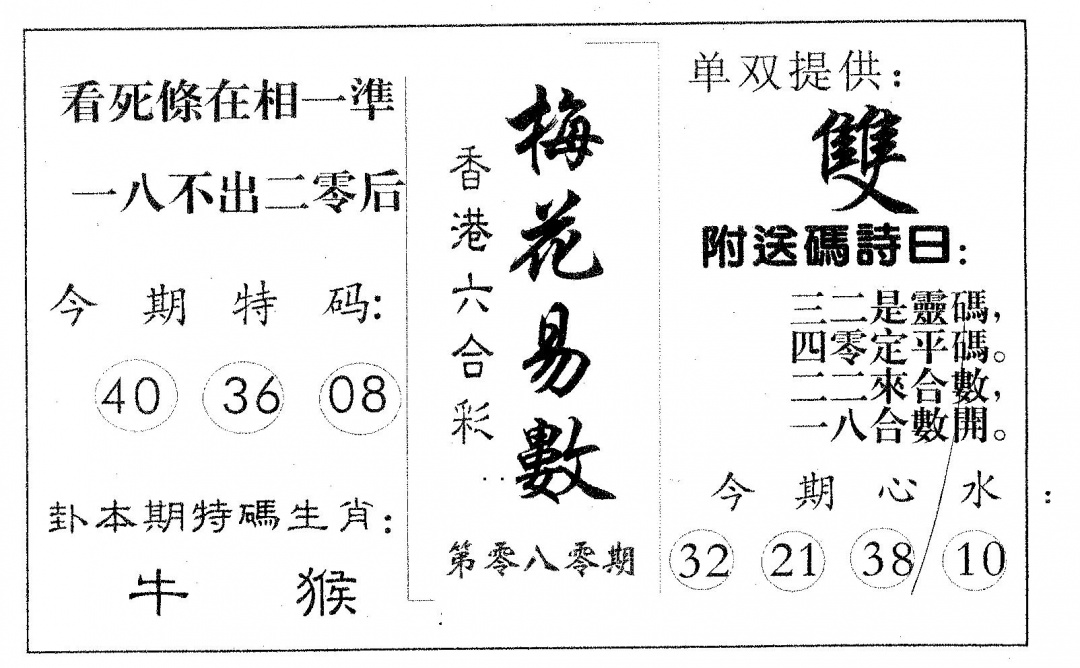 看死條在相一準
一八不出二零后
今期特码:
40 36 08
卦本期特碼生肖:
牛 猴
香港六合彩
梅花易數
第零八零期
单双提供:
雙
附送碼詩曰:
三二是靈碼,
四零定平碼。
二二來合數,
一八合數開。
今期心水:
32 21 38 10